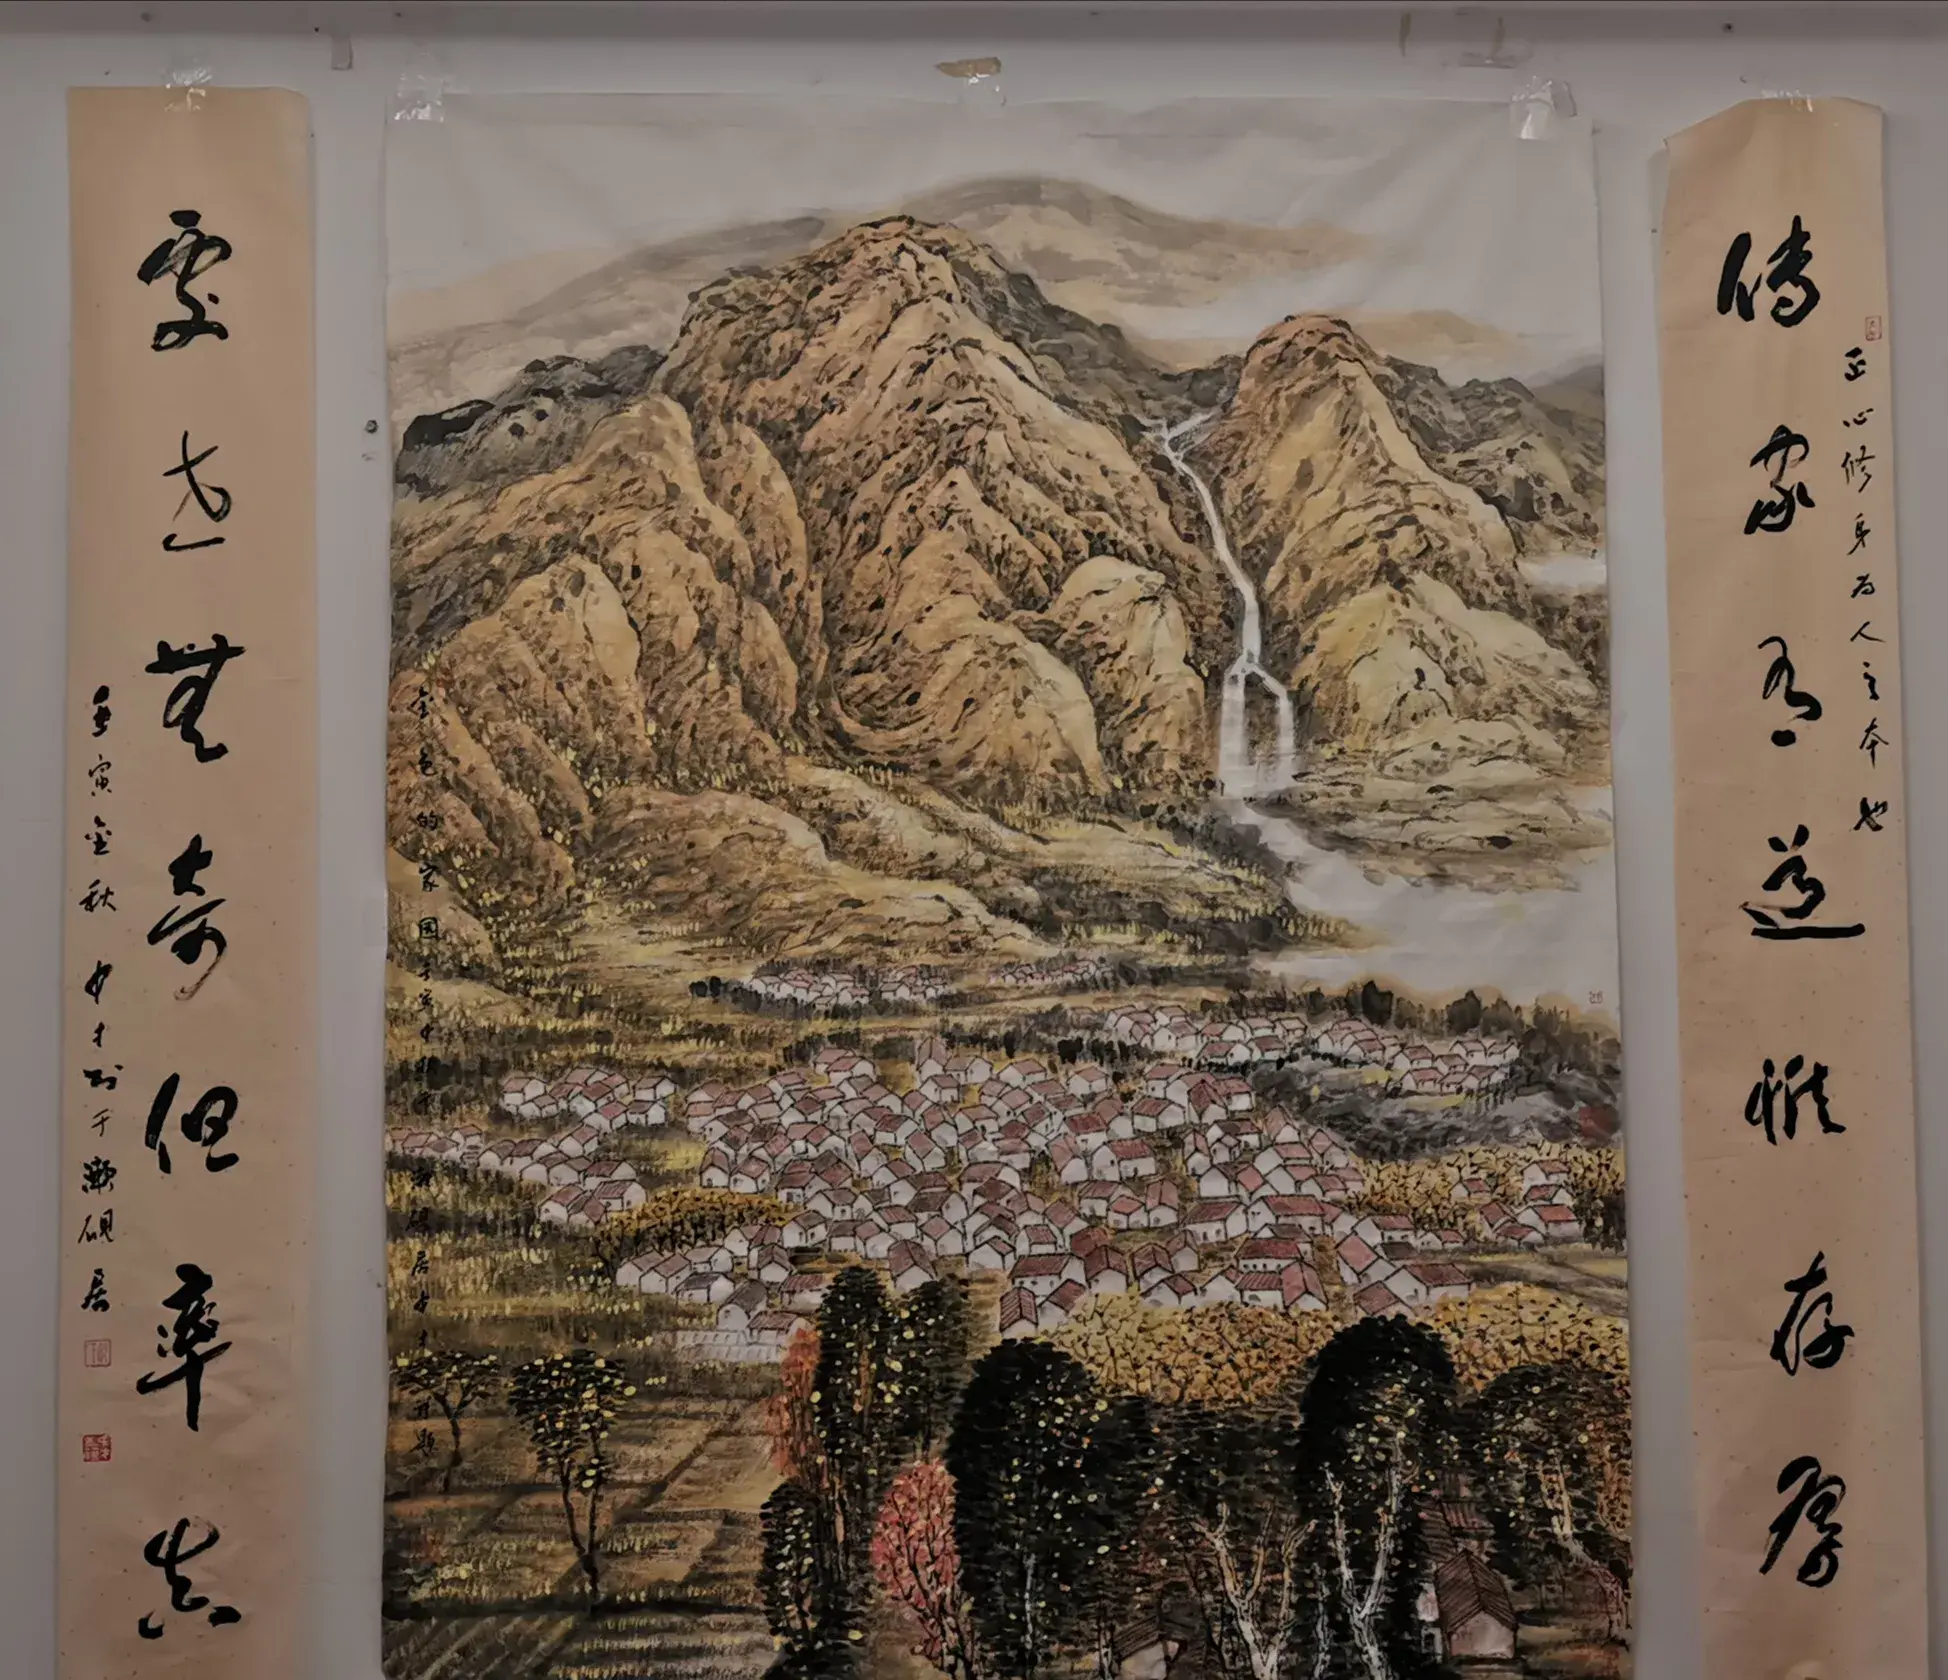 傳家有道惟存厚
正心修身为人之本也
處世無奇但率真
壬寅金秋 中才 于漱砚居
金色的家园 壬寅中秋 砚居 才 并题